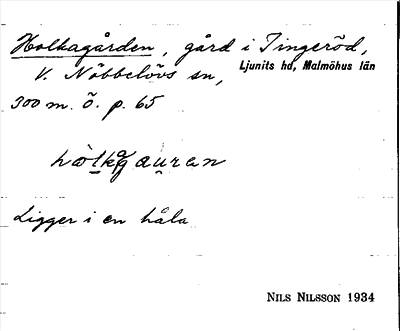 Holkagården, gård i Tingeröd,
V. Nöbbelövs sn, Ljunits hd, Malmöhus län
300 m. Ö. p. 65
Ligger i en håla
NILS NILSSON 1934